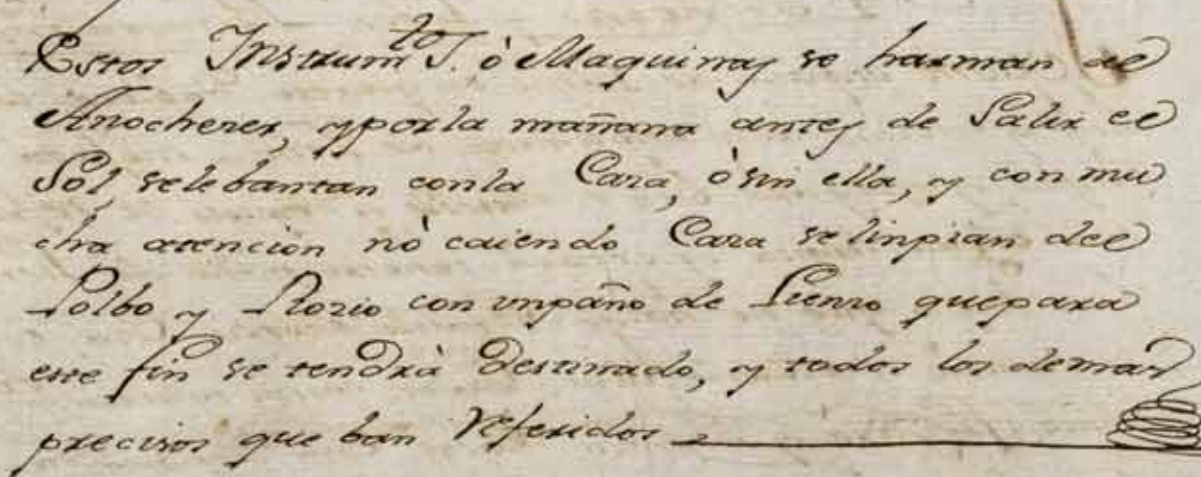 Estos Instrum.tos ò Maquinas se harman al
Anocheser, y por la mañana antes de Salir el
Sol, se lebantan con la Caza, ò sin ella, y con mu
cha atencion nò caiendo Caza se linpian del
Polbo y Rozio con un paño de Lienzo que para
este fin se tendrà Destinado, y todos los demas
precisos que ban Referidos